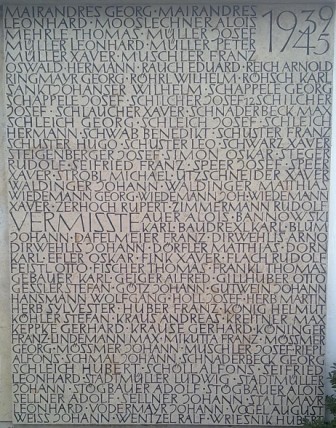 MAIRANDRES GEORG · MAIRANDRES
LEONHARD · MOOSLECHNER ALOIS
MÜHRLE THOMAS · MÜLLER JOSEF
MÜLLER LEONHARD · MÜLLER PETER
MÜLLER XAVER · MUSCHLER FRANZ
1939
1945
WALD HERMANN · RAUCH EDUARD REICH ARNOLD
RINGMAYR GEORG · RÖHRL WILHELM · RÖHSCH KARL
SANKTJOHANSER WILHELM · SCHAPPELE GEORG
SCHAPPELE JOSEF · SCHILCHER JOSEF SCHILCHER
JOSEF · SCHLAUCHER XAVER · SCHNADERBECK MAX
SCHLEICH GEORG · SCHLEICH JOSEF · SCHLEICH
HERMANN · SCHWAB BENEDIKT · SCHUSTER FRANZ
SCHUSTER HUGO · SCHUSTER LEO · SCHWARZ XAVER
STEIGENBERGER JOSEF OSKAR · STEGER
RUDOLF · SEIFRIED FRANZ · SPERR JOSEF
XAVER · STROBL MICHAEL · UTZSCHNEIDER XAVER
WALDINGER JOHANN · WALDINGER MATHIAS
WIEDEMANN GEORG · WIEDEMANN JOH · WIEDEMANN
XAVER · ZERHOCH RUPERT · ZIMMERMANN RUDOLF
VERMISSTE AUER ALOIS · BANNOWSKI
KARL · BAUDREXL KARL · BLUM
JOHANN · DAFELMEIER FRANZ · DIRWEHLI ARNOLD
DIRWEHLI JOHANN · DÖRFLER MATHIAS · DORN
KARL · EFLER OSKAR · FINK XAVER · FLACH RUDOLF
FEISTL OTTO · FISCHER THOMAS · FRANKL THOMAS
GEBAUER KARL · GEIGER ALFRED · GILLHUBER OTTO
GESSLER STEFAN · GÖTZ JOHANN · GUTWEIN JOHANN
HANSMANN WOLFGANG · HOLL JOSEF · HERB MARTIN
HERB SYLVESTER · HUBER FRANZ · KÖNIG HELMUT
KÖHLER STEFAN · KRAUS ANDREAS · KRÖNNER MAX
KEPPKE GERHARD · KRAUSE GERHARD · KÖLLINGER
FRANZ · LINDEMANN MAX · MIKUTTA FRANZ · MÖSSMER
GEORG · MÖSSMER JOHANN · MUSCHLER JOSEF · RIEL
ALFONS · SCHMID JOHANN · SCHNADERBECK GEORG
SCHLEICH HUBERT · SCHÖLL ALFONS · SEIFRIED
LEONHARD · STADTMÜLLER LUDWIG · STADTMÜLLER
JOHANN · STÖGBAUER ADOLF · STÖGBAUER MAX
STÖGBAUER ALFONS · SAILER JOHANN · STANNER
LEONHARD · VODERMAYR JOHANN · VOGEL AUGUST
WEISS JOHANN · WENTZEL RALF · WRIESNIK HUBERT